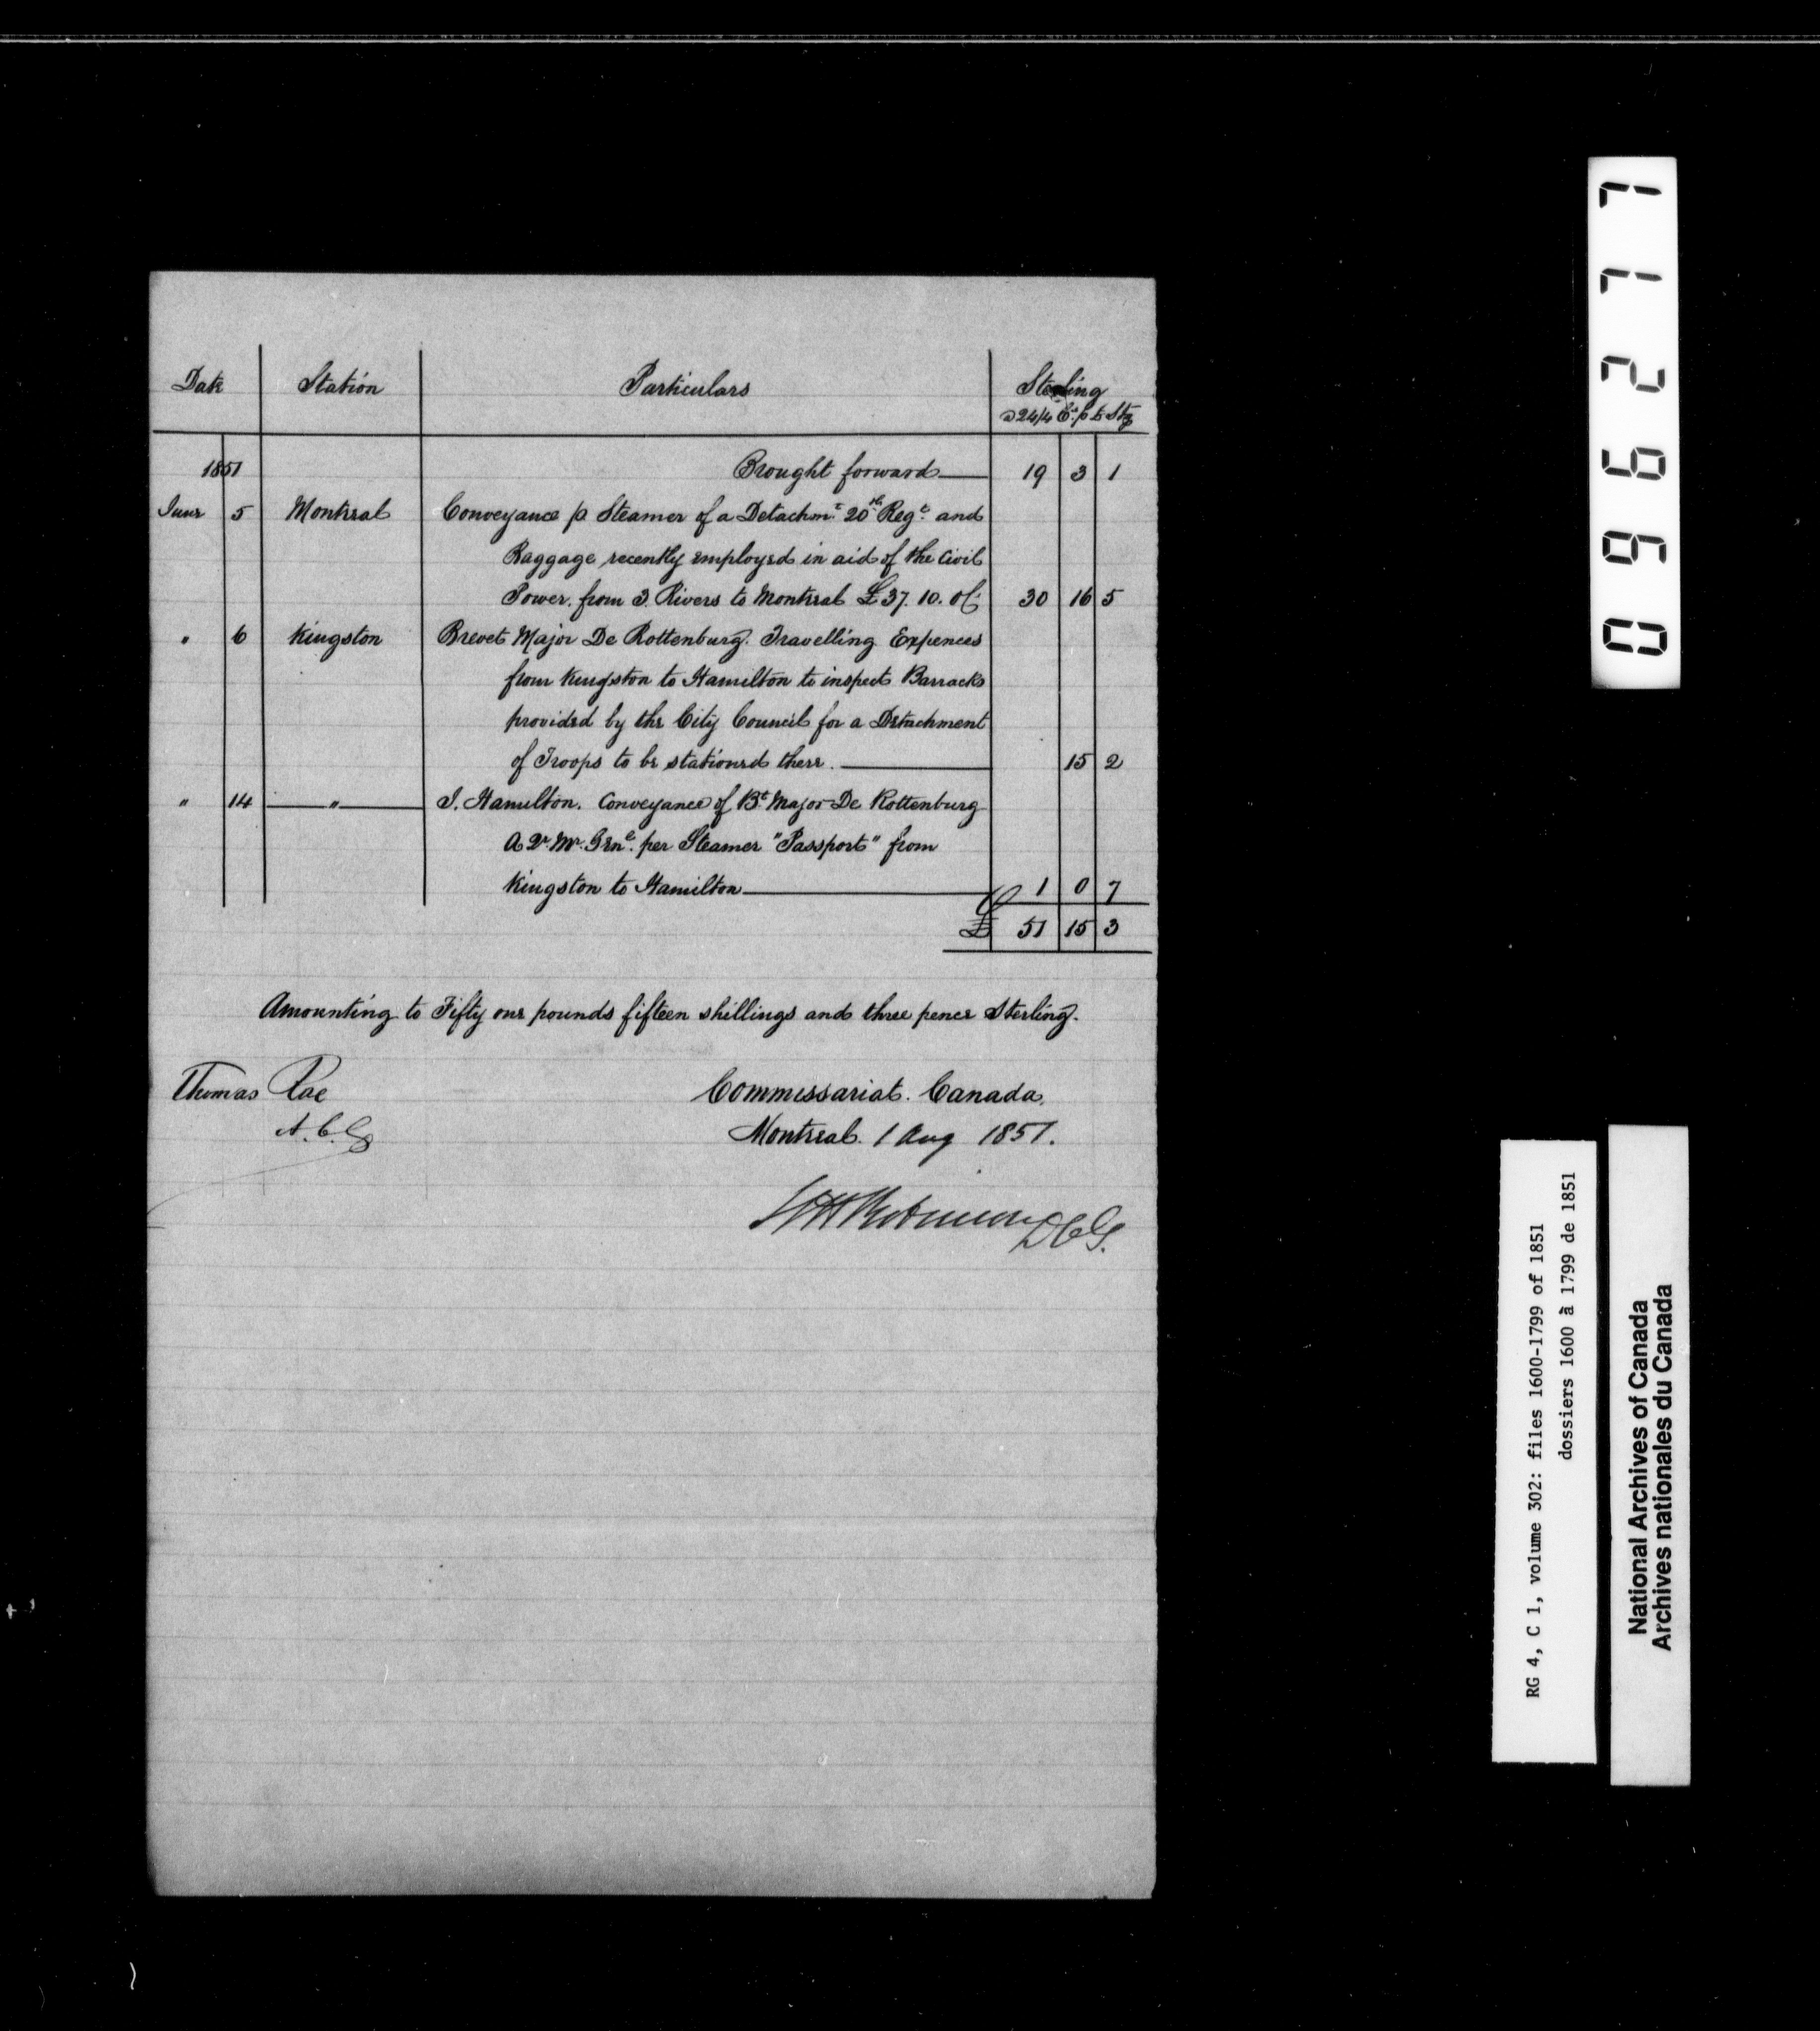 Date Station Particulars Sterling
@ 24/4 Cy p £ Stg
1851 Brought forward 19 3 1
June 5 Montreal Conveyance p Steamer of a Detachmt 20th Regt and
Baggage recently employed in aid of the Civil
Power. from 3 Rivers to Montreal £37. 10. 0 Cy 30 16 5
" 6 Kingston Brevet Major De Rottenburg. Travelling Expences
from Kingston to Hamilton to inspect Barracks
provided by the City Council for a Detachment
of Troops to be stationed there. 15 2
" 14 " J. Hamilton. Conveyance of Bt Major De Rottenburg
A Qr Mr Genl. per Steamer "Passport" from
Kingston to Hamilton 1 0 7
£ 51 15 3
Amounting to Fifty one pounds fifteen shillings and three pence Sterling.
Thomas Rae Commissariat. Canada,
A.C.G Montreal. 1 Aug 1851.
Robinson DCG.
096277
RG 4, C 1, volume 302: files 1600-1799 of 1851
dossiers 1600 à 1799 de 1851
National Archives of Canada
Archives nationales du Canada